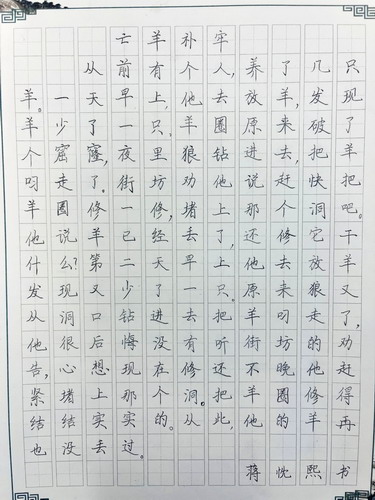 亡羊补牢
从前有个人,养了几只
羊。一天早上,他去放羊,发现
羊少了一只。羊圈原来破了
个窟窿,夜里狼钻进去,把羊
叼走了。街坊劝他说赶快把
羊圈修一修,堵上那个洞吧。
他说羊已经丢了,还修它干
什么?第二天早上他去放羊
发现又少了一只。原来狼又
从洞口钻进去把羊叼走了,
他很后悔没有听街坊的劝
告,心想现在修还不晚他赶
紧堵上那个洞。把羊圈修得
结结实实的。从此,他的羊再
也没丢过。
蒋忱熙书